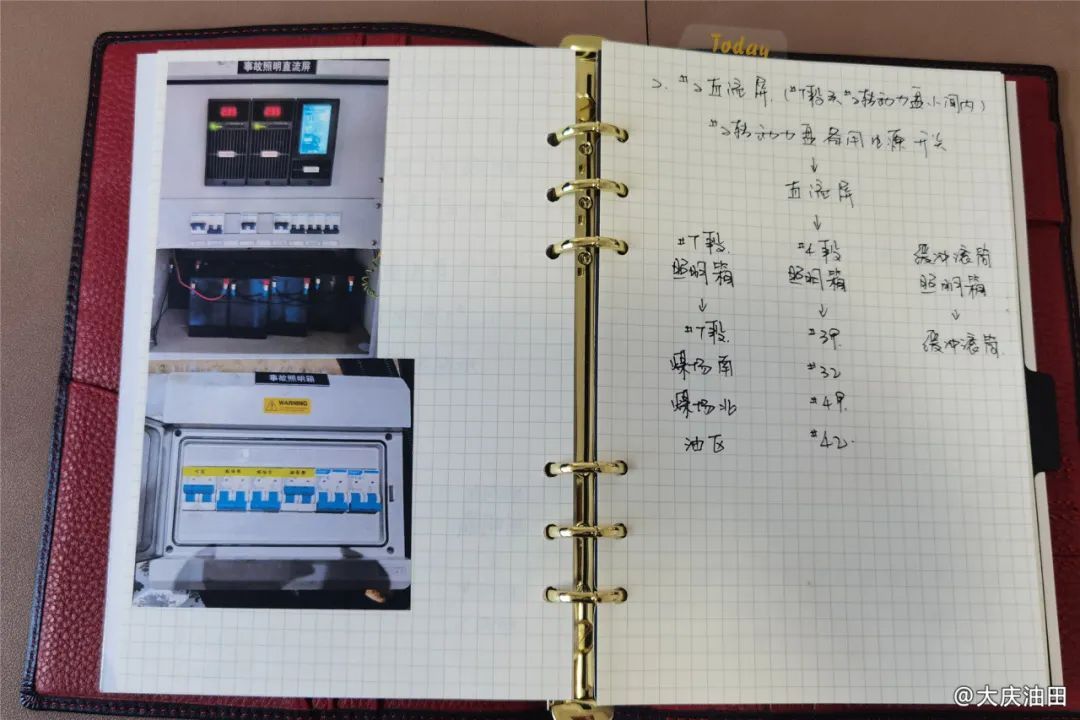 事故照明直流屏
事故照明箱
WARNING
Today
2. #2直流屏. (#7段及#2转动力盘小间内)
#2转动力盘备用电源开关
↓
直流屏
↓
#7段 #4段 缓冲滚筒
照明箱 照明箱 照明箱
↓ ↓ ↓
#7段 #3甲 缓冲滚筒
煤场南 #32
煤场北 #4甲
油区 #42
@大庆油田